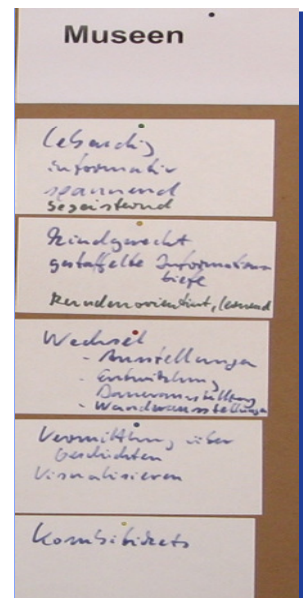 Museen
Lebendig
informativ
spannend
begeisternd
Kindgerecht
gestaffelte Informations
tiefe
Kundenorientiert, lernend
Wechsel
- Ausstellungen
- Entwicklung
Dauerausstellung
- Wanderausstellungen
Vermittlung über
Geschichten
Visualisieren
Kombitickets